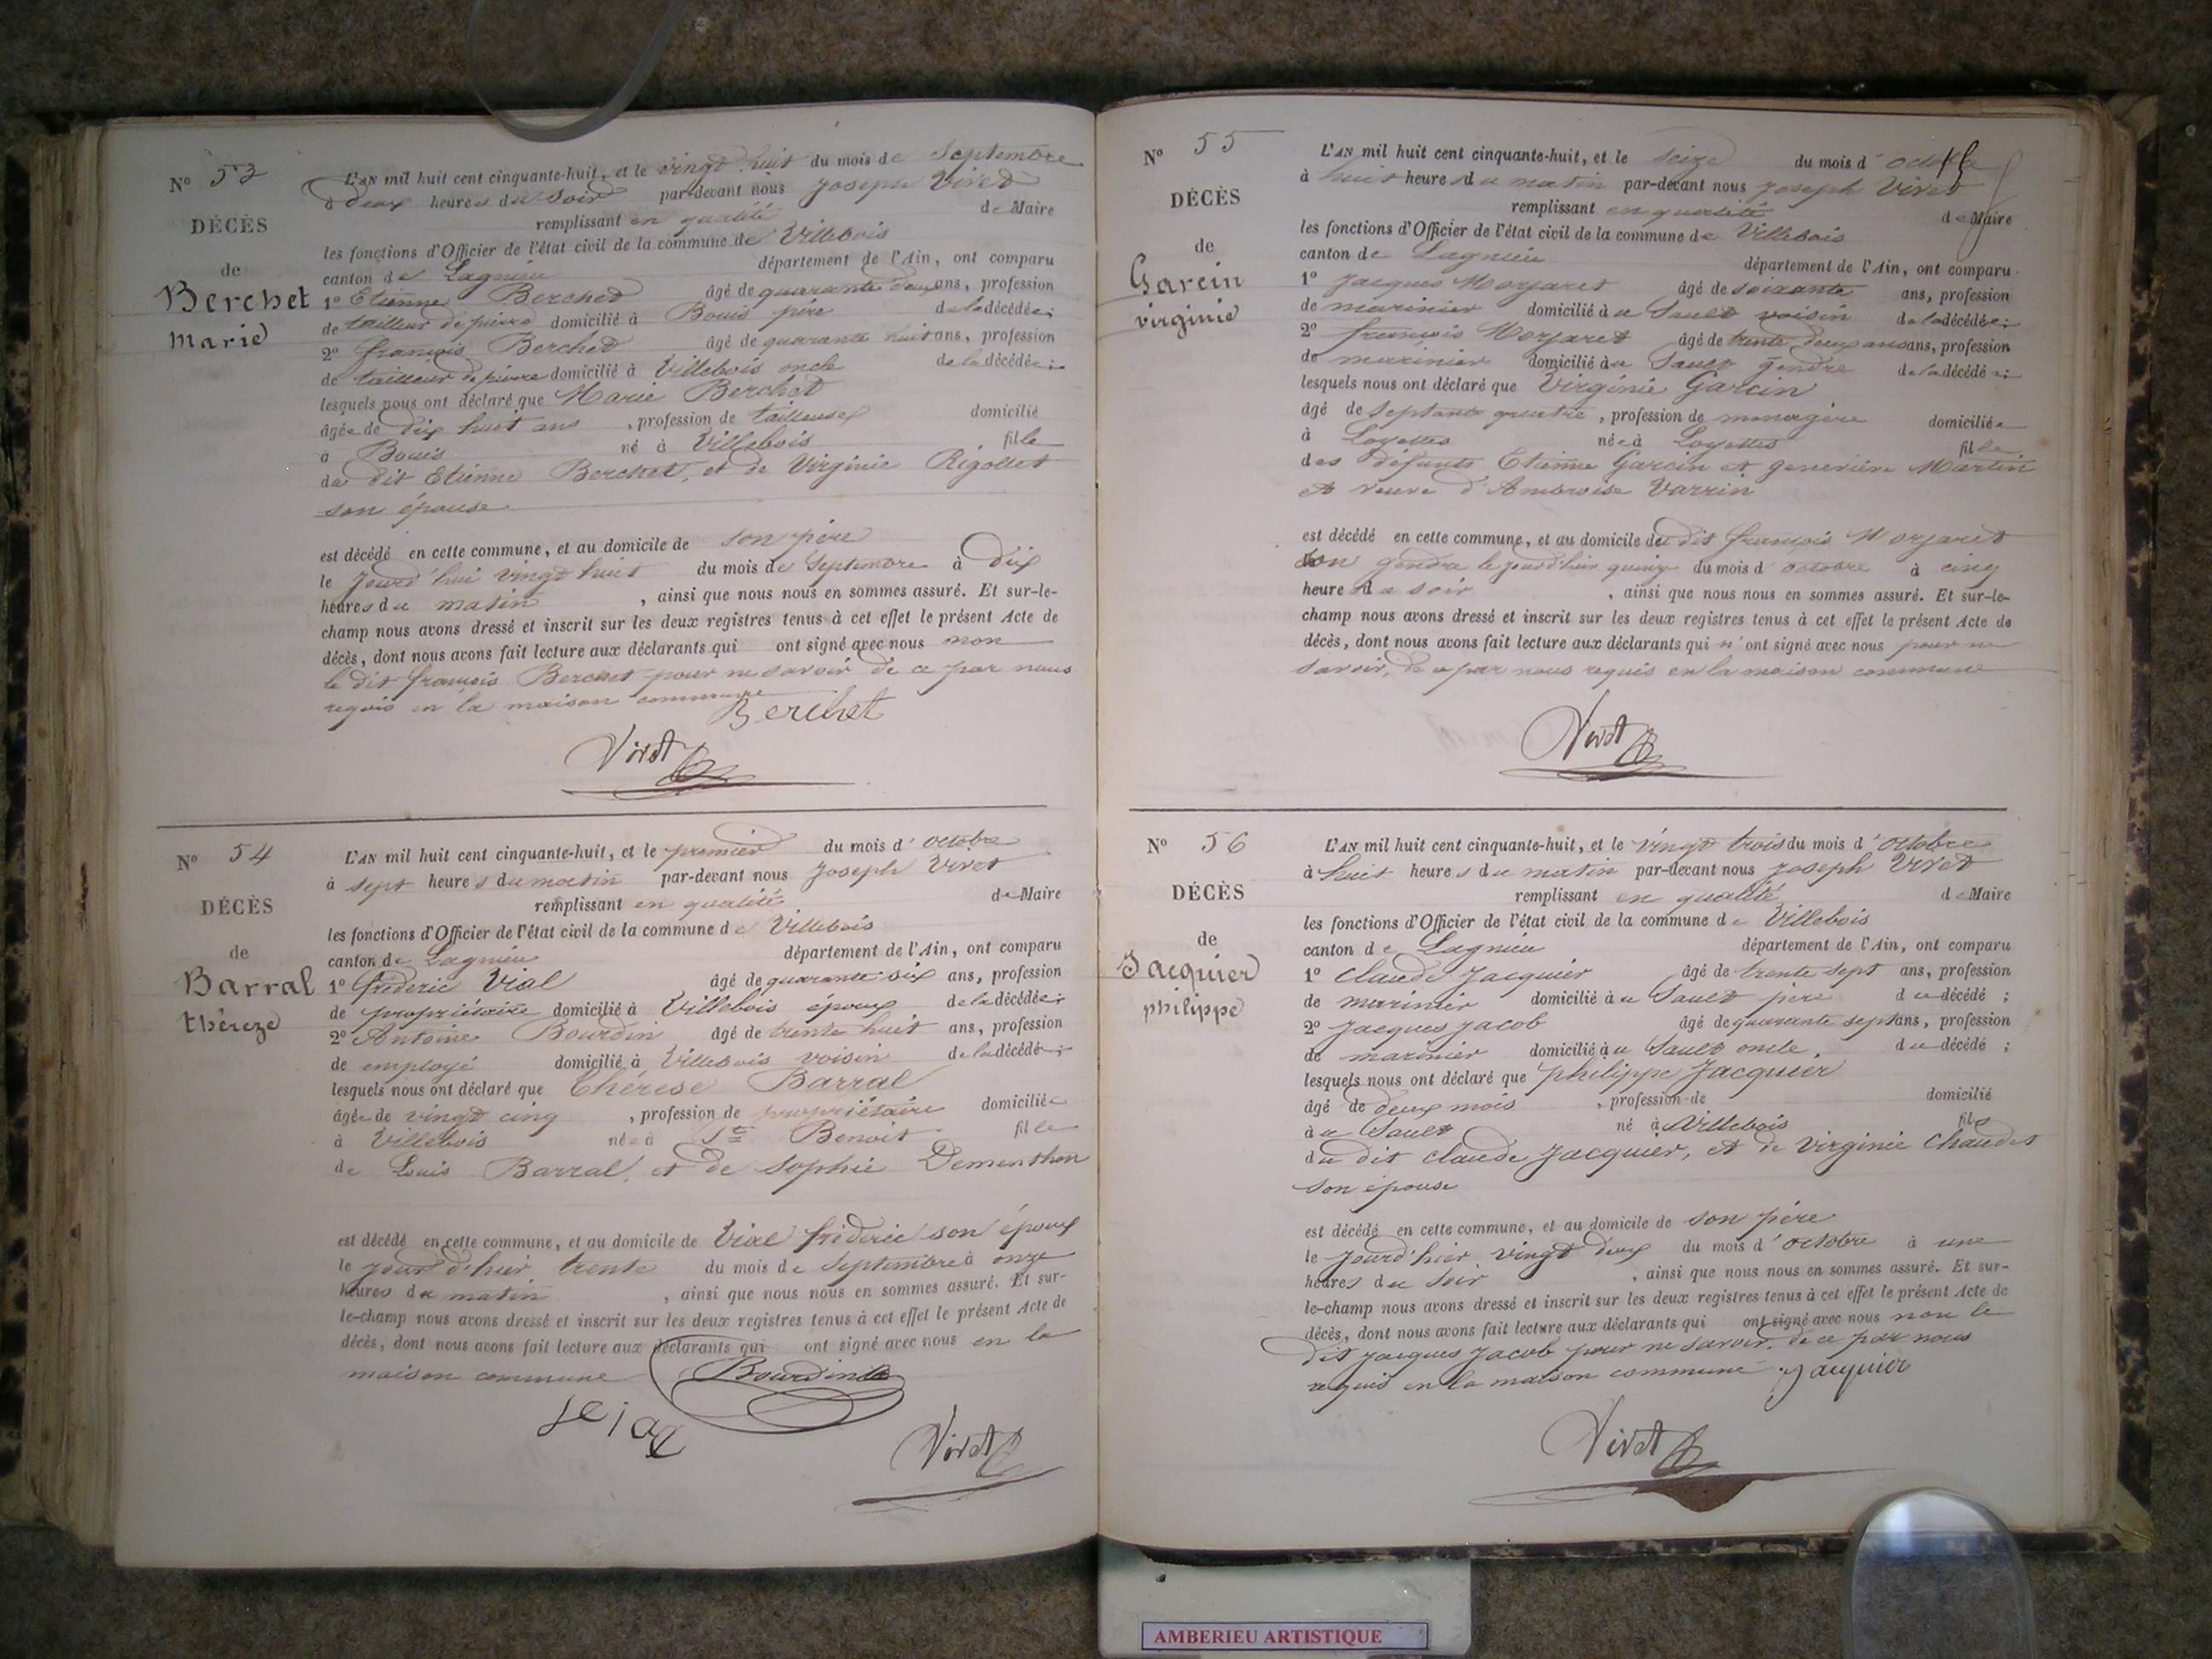 N° 53
DÉCÈS
de
Berchet
marie
L'AN mil huit cent cinquante-huit, et le vingt huit du mois de Septembre
à deux heures du soir par-devant nous Joseph Vivet
remplissant en qualité de Maire
les fonctions d'Officier de l'état civil de la commune de Villebois
canton de Lagnieu département de l'Ain, ont comparu
1° Etienne Berchet âgé de quarante deux ans, profession
de tailleur de pierre domicilié à Bouis père de la décédée;
2° françois Berchet âgé de quarante huit ans, profession
de tailleur de pierre domicilié à Villebois oncle de la décédée;
lesquels nous ont déclaré que Marie Berchet
âgée de dix huit ans, profession de tailleuse domicilié
à Bouis né à Villebois fille
du dit Etienne Berchet, et de Virginie Rigollet
son épouse
est décédé en cette commune, et au domicile de son père
le jourd'hui vingt huit du mois de Septembre à dix
heures du matin, ainsi que nous nous en sommes assuré. Et sur-le-
champ nous avons dressé et inscrit sur les deux registres tenus à cet effet le présent Acte de
décès, dont nous avons fait lecture aux déclarants qui ont signé avec nous non
le dit françois Berchet pour ne savoir de ce par nous
requis en la maison commune
Berchet
Vivet
N° 54
DÉCÈS
de
Barral
théreze
L'AN mil huit cent cinquante-huit, et le premier du mois d'octobre
à sept heures du matin par-devant nous Joseph Vivet
remplissant en qualité de Maire
les fonctions d'Officier de l'état civil de la commune de Villebois
canton de Lagnieu département de l'Ain, ont comparu
1° fréderic Vial âgé de quarante six ans, profession
de propriétaire domicilié à Villebois époux de la décédée;
2° Antoine Bourdin âgé de trente huit ans, profession
de employé domicilié à Villebois voisin de la décédée;
lesquels nous ont déclaré que thérese Barral
âgée de vingt cinq, profession de propriétaire domiciliée
à Villebois née à St Benoit fille
de Louis Barral, et de Sophie Dementhon
est décédé en cette commune, et au domicile de Vial fréderic son époux
le jour d'hier trente du mois de Septembre à onze
heures du matin, ainsi que nous nous en sommes assuré. Et sur-
le-champ nous avons dressé et inscrit sur les deux registres tenus à cet effet le présent Acte de
décès, dont nous avons fait lecture aux déclarants qui ont signé avec nous en la
maison commune
Bourdin
Vivet
N° 55
DÉCÈS
de
Garcin
virginie
L'AN mil huit cent cinquante-huit, et le seize du mois d'octobre
à huit heures du matin par-devant nous Joseph Vivet
remplissant en qualité de Maire
les fonctions d'Officier de l'état civil de la commune de Villebois
canton de Lagnieu département de l'Ain, ont comparu
1° Jacques Morjaret âgé de soixante ans, profession
de marinier domicilié au Sault voisin de la décédée;
2° françois Morjaret âgé de trente deux ans ans, profession
de marinier domicilié au Sault gendre de la décédée;
lesquels nous ont déclaré que Virginie Garcin
âgé de septante quatre, profession de menagère domiciliée
à Loyettes née à Loyettes fille
des défunts Etienne Garcin et geneviève Martin
et veuve d'Ambroise Varrin
est décédé en cette commune, et au domicile du dit françois Morjaret
son gendre le jourd'hier quinze du mois d'octobre à cinq
heures du soir, ainsi que nous nous en sommes assuré. Et sur-le-
champ nous avons dressé et inscrit sur les deux registres tenus à cet effet le présent Acte de
décès, dont nous avons fait lecture aux déclarants qui n'ont signé avec nous pour ne
savoir, de ce par nous requis en la maison commune
Vivet
N° 56
DÉCÈS
de
Jacquier
philippe
L'AN mil huit cent cinquante-huit, et le vingt trois du mois d'octobre
à huit heures du matin par-devant nous Joseph Vivet
remplissant en qualité de Maire
les fonctions d'Officier de l'état civil de la commune de Villebois
canton de Lagnieu département de l'Ain, ont comparu
1° claude Jacquier âgé de trente sept ans, profession
de marinier domicilié au Sault père du décédé;
2° Jacques Jacob âgé de quarante sept ans, profession
de marinier domicilié au Sault oncle. du décédé;
lesquels nous ont déclaré que philippe Jacquier
âgé de deux mois, profession de domicilié
au Sault né à Villebois fils
du dit claude Jacquier, et de Virginie Chaudet
son épouse
est décédé en cette commune, et au domicile de son père
le jourd'hier vingt deux du mois d'octobre à une
heures du soir, ainsi que nous nous en sommes assuré. Et sur-
le-champ nous avons dressé et inscrit sur les deux registres tenus à cet effet le présent Acte de
décès, dont nous avons fait lecture aux déclarants qui ont signé avec nous non le
dit Jacques Jacob pour ne savoir, de ce par nous
requis en la maison commune Jaquier
Vivet
AMBERIEU ARTISTIQUE